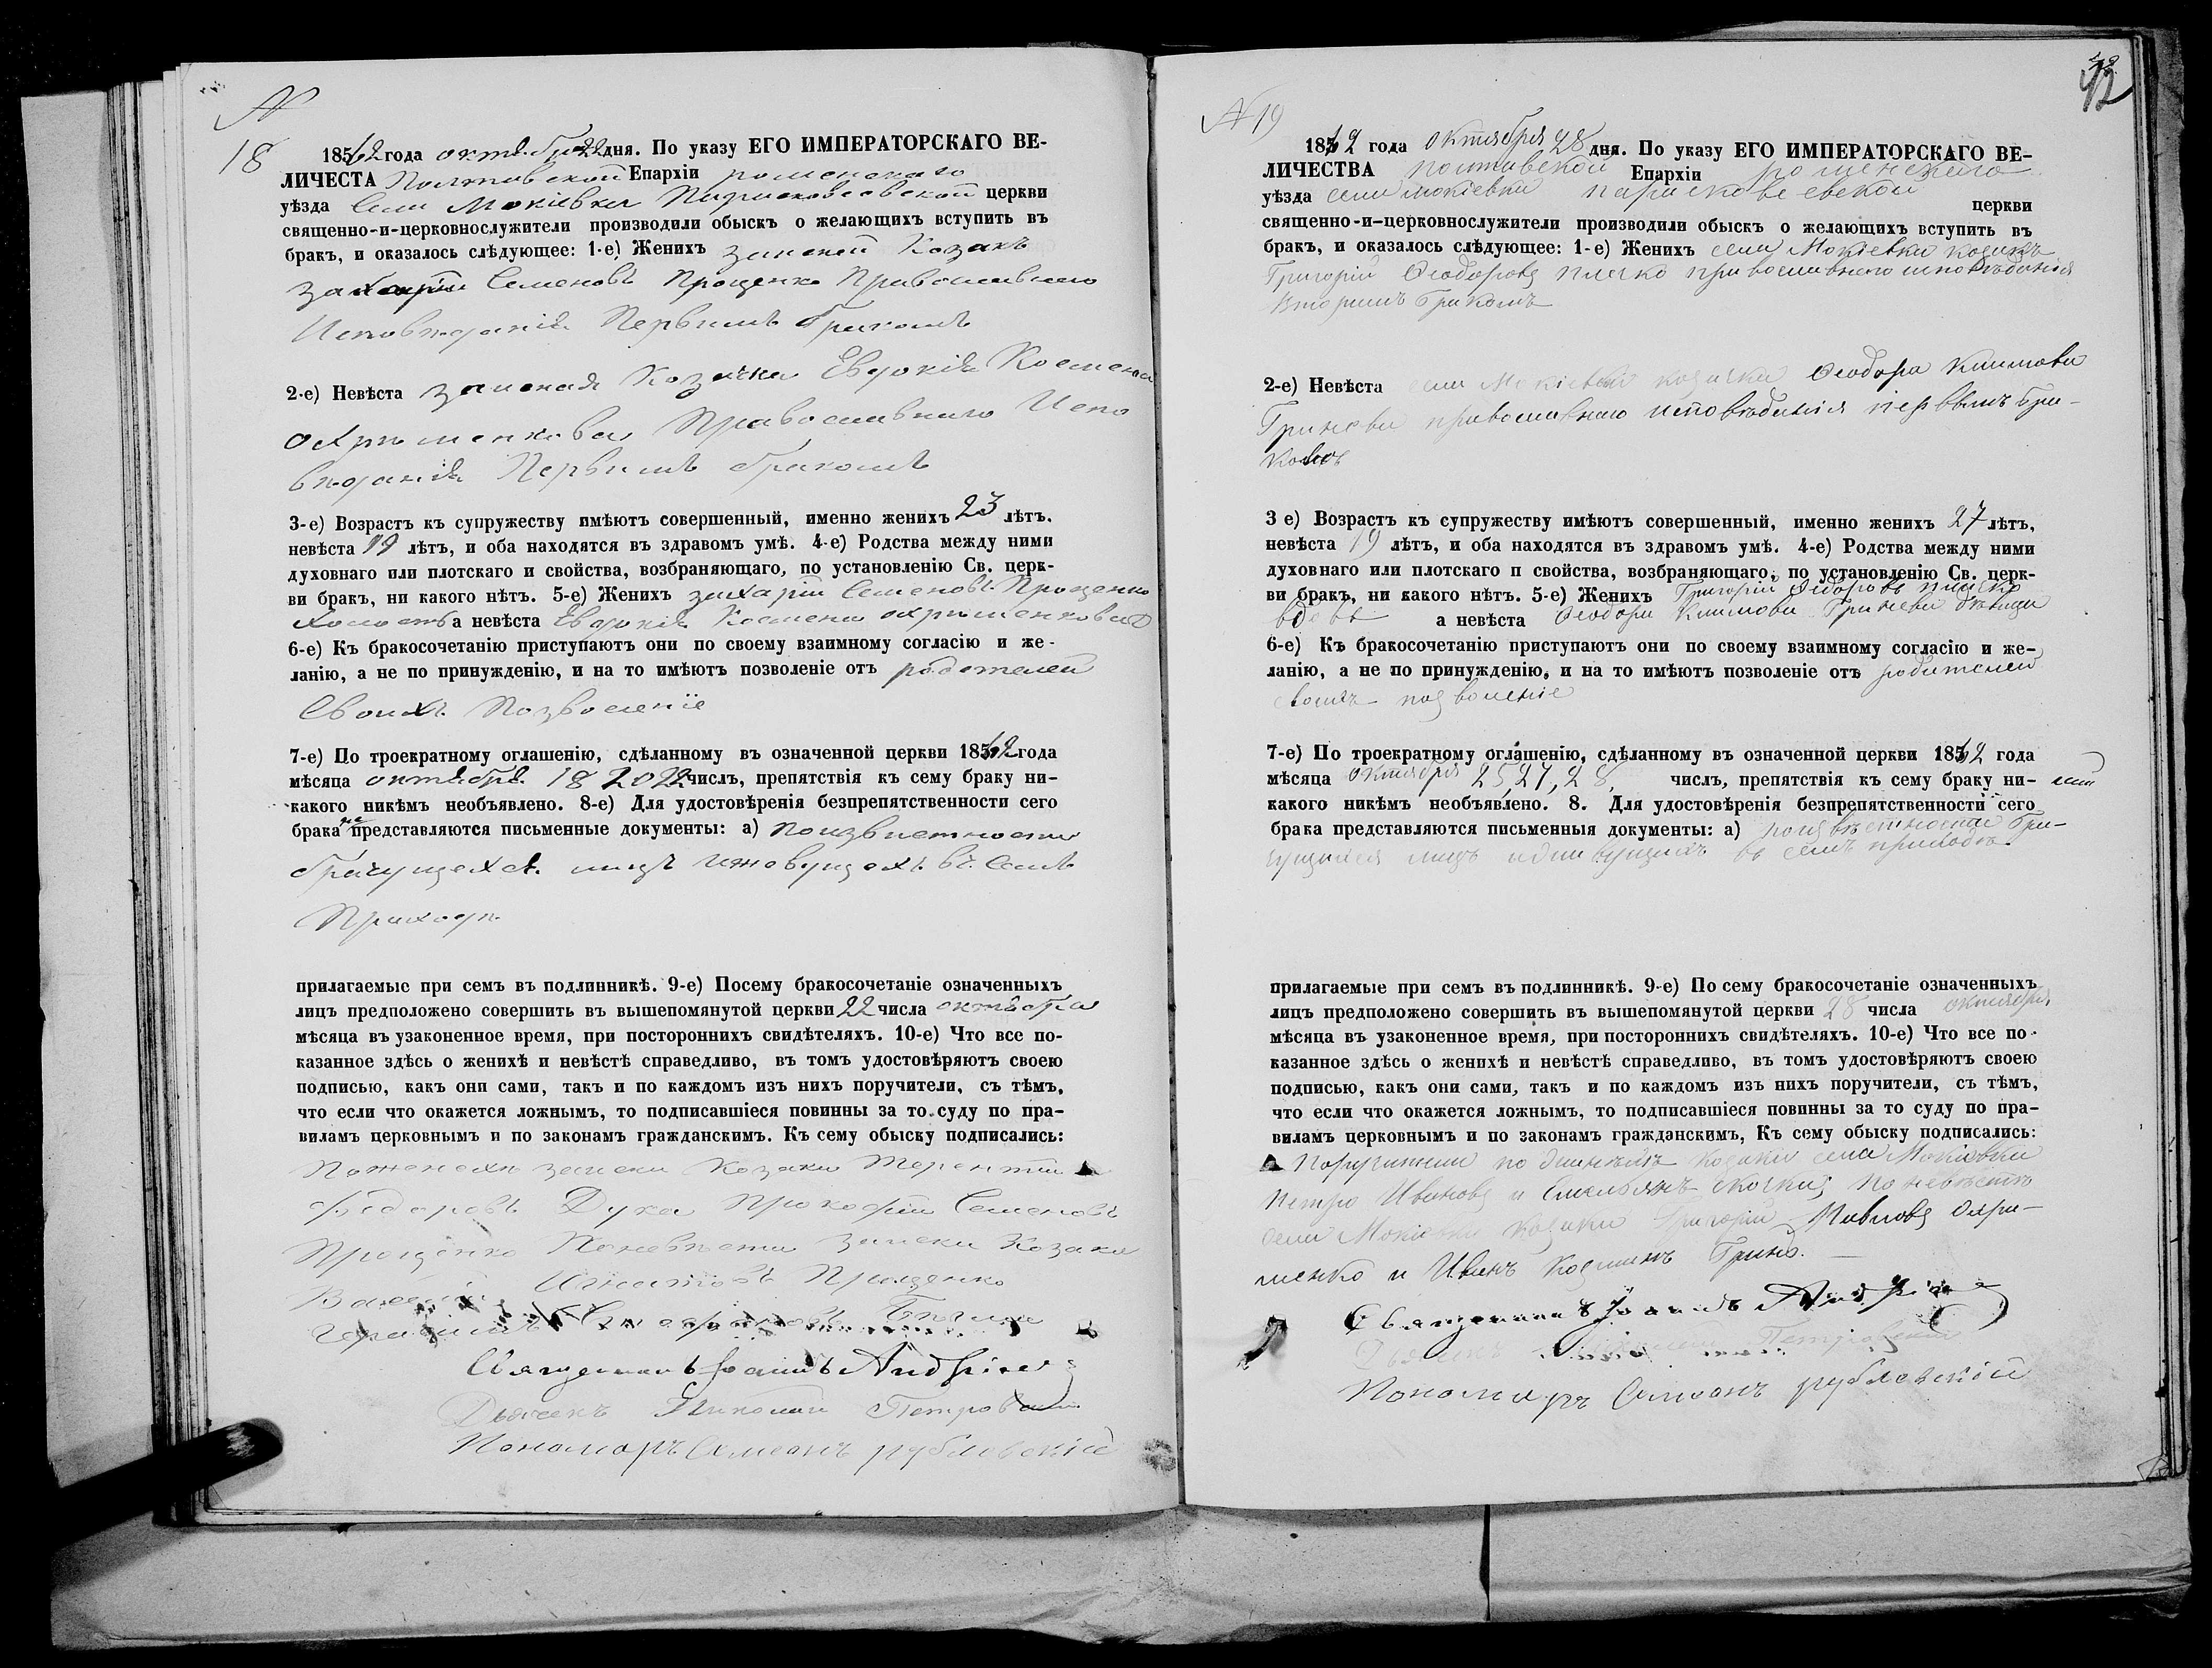 №
18
1862 года октября 22 дня. По указу ЕГО ИМПЕРАТОРСКАГО ВЕ-
ЛИЧЕСТА Полтавской Епархіи роменскаго
уѣзда Села Мокіевки Параскевіевской церкви
священно-и-церковнослужители производили обыскъ о желающихъ вступить въ
бракъ, и оказалось слѣдующее: 1-е) Женихъ Козакъ
Захарій Семеновъ Проценко Православнаго
Исповѣданія Первымъ бракомъ
2-е) Невѣста Козачка Евдокія
Охрѣменкова Православнаго Испо
вѣданія Первымъ бракомъ
3-е) Возрастъ къ супружеству имѣютъ совершенный, именно женихъ 23 лѣтъ.
невѣста 19 лѣтъ, и оба находятся въ здравомъ умѣ. 4-е) Родства между ними
духовнаго или плотскаго и свойства, возбраняющаго, по установленію Св. церк-
ви бракъ, ни какого нѣтъ. 5-е) Женихъ захарій Семеновъ Проценко
холостъ а невѣста Евдокія охрѣменкова
6-е) Къ бракосочетанію приступаютъ они по своему взаимному согласію и же-
ланію, а не по принужденію, и на то имѣютъ позволеніе отъ родителей
Своихъ Позволеніе
7-е) По троекратному оглашенію, сдѣланному въ означенной церкви 1862 года
мѣсяца октября 18 20 22 числъ, препятствія къ сему браку ни-
какого никѣмъ необъявлено. 8-е) Для удостовѣренія безпрепятственности сего
брака не представляются письменные документы: а) поизвѣстности
брачущехся лицъ ижовущехъ въ Семъ
Приходѣ
прилагаемые при семъ въ подлинникѣ. 9-е) Посему бракосочетаніе означенныхъ
лицъ предположено совершить въ вышепомянутой церкви 22 числа октября
мѣсяца въ узаконенное время, при постороннихъ свидѣтеляхъ. 10-е) Что все по-
казанное здѣсь о женихѣ и невѣстѣ справедливо, въ томъ удостовѣряютъ своею
подписью, какъ они сами, такъ и по каждомъ изъ нихъ поручители, съ тѣмъ,
что если что окажется ложнымъ, то подписавшіеся повинны за то суду по пра-
виламъ церковнымъ и по законамъ гражданскимъ. Къ сему обыску подписались:
Поженехѣ Козаки Терентій
Федоровъ Дука Прокофій Семеновъ
Проценко Поневѣсти Козаки
Василій Игнатовъ Проценко
Священникъ Іоаннъ Андріевъ
Дьячекъ Николай Петровскій
Пономарь Симеонъ рублевскій
42
№ 19
1862 года Октября 28 дня. По указу ЕГО ИМПЕРАТОРСКАГО ВЕ-
ЛИЧЕСТВА полтавской Епархіи роменскаго
уѣзда села мокіевки параскевіевской церкви
священно-и-церковнослужители производили обыскъ о желающихъ вступить въ
бракъ, и оказалось слѣдующее: 1-е) Женихъ села Мокіевки козакъ
Григорій Феодоровъ православнаго исповѣданія
Вторымъ бракомъ
2-е) Невѣста села Мокіевки козачка Феодора Климова
Гринева православнаго исповѣданія первымъ бра-
комъ
3 е) Возрастъ къ супружеству имѣютъ совершенный, именно женихъ 27 лѣтъ,
невѣста 19 лѣтъ, и оба находятся въ здравомъ умѣ. 4-е) Родства между ними
духовнаго или плотскаго п свойства, возбраняющаго, по установленію Св. церк-
ви бракъ, ни какого нѣтъ. 5-е) Женихъ Григорій Федоровъ
вдовъ а невѣста Феодора Климова Гринева дѣвица
6-е) Къ бракосочетанію приступаютъ они по своему взаимному согласію и же-
ланію, а не по принужденію, и на то имѣютъ позволеніе отъ родителей
своихъ позволеніе
7-е) По троекратному оглашенію, сдѣланному въ означенной церкви 1862 года
мѣсяца Октября 25, 27, 28, числъ, препятствія къ сему браку ни-
какого никѣмъ необъявлено. 8. Для удостовѣренія безпрепятственности сего
брака представляются письменныя документы: а) поизвѣстности бра-
чущихся лицъ въ семъ приходѣ
прилагаемые при семъ въ подлинникѣ. 9-е) По сему бракосочетаніе означенныхъ
лицъ предположено совершить въ вышепомянутой церкви 28 числа октября
мѣсяца въ узаконенное время, при постороннихъ свидѣтеляхъ. 10-е) Что все по-
казанное здѣсь о женихѣ и невѣстѣ справедливо, въ томъ удостовѣряютъ своею
подписью, какъ они сами, такъ и по каждомъ изъ нихъ поручители, съ тѣмъ,
что если что окажется ложнымъ, то подписавшіеся повинны за то суду по пра-
виламъ церковнымъ и по законамъ гражданскимъ, Къ сему обыску подписались:
козаки села Мокіевки
Петро Ивановъ и Емельянъ по невѣстѣ
села Мокіевки козаки Григорій Павловъ Охри-
менко и Иванъ Козминъ Гринь.
Священникъ Іоаннъ Андріевъ
Дьячекъ Петровскій
Пономарь Симеонъ рублевскій